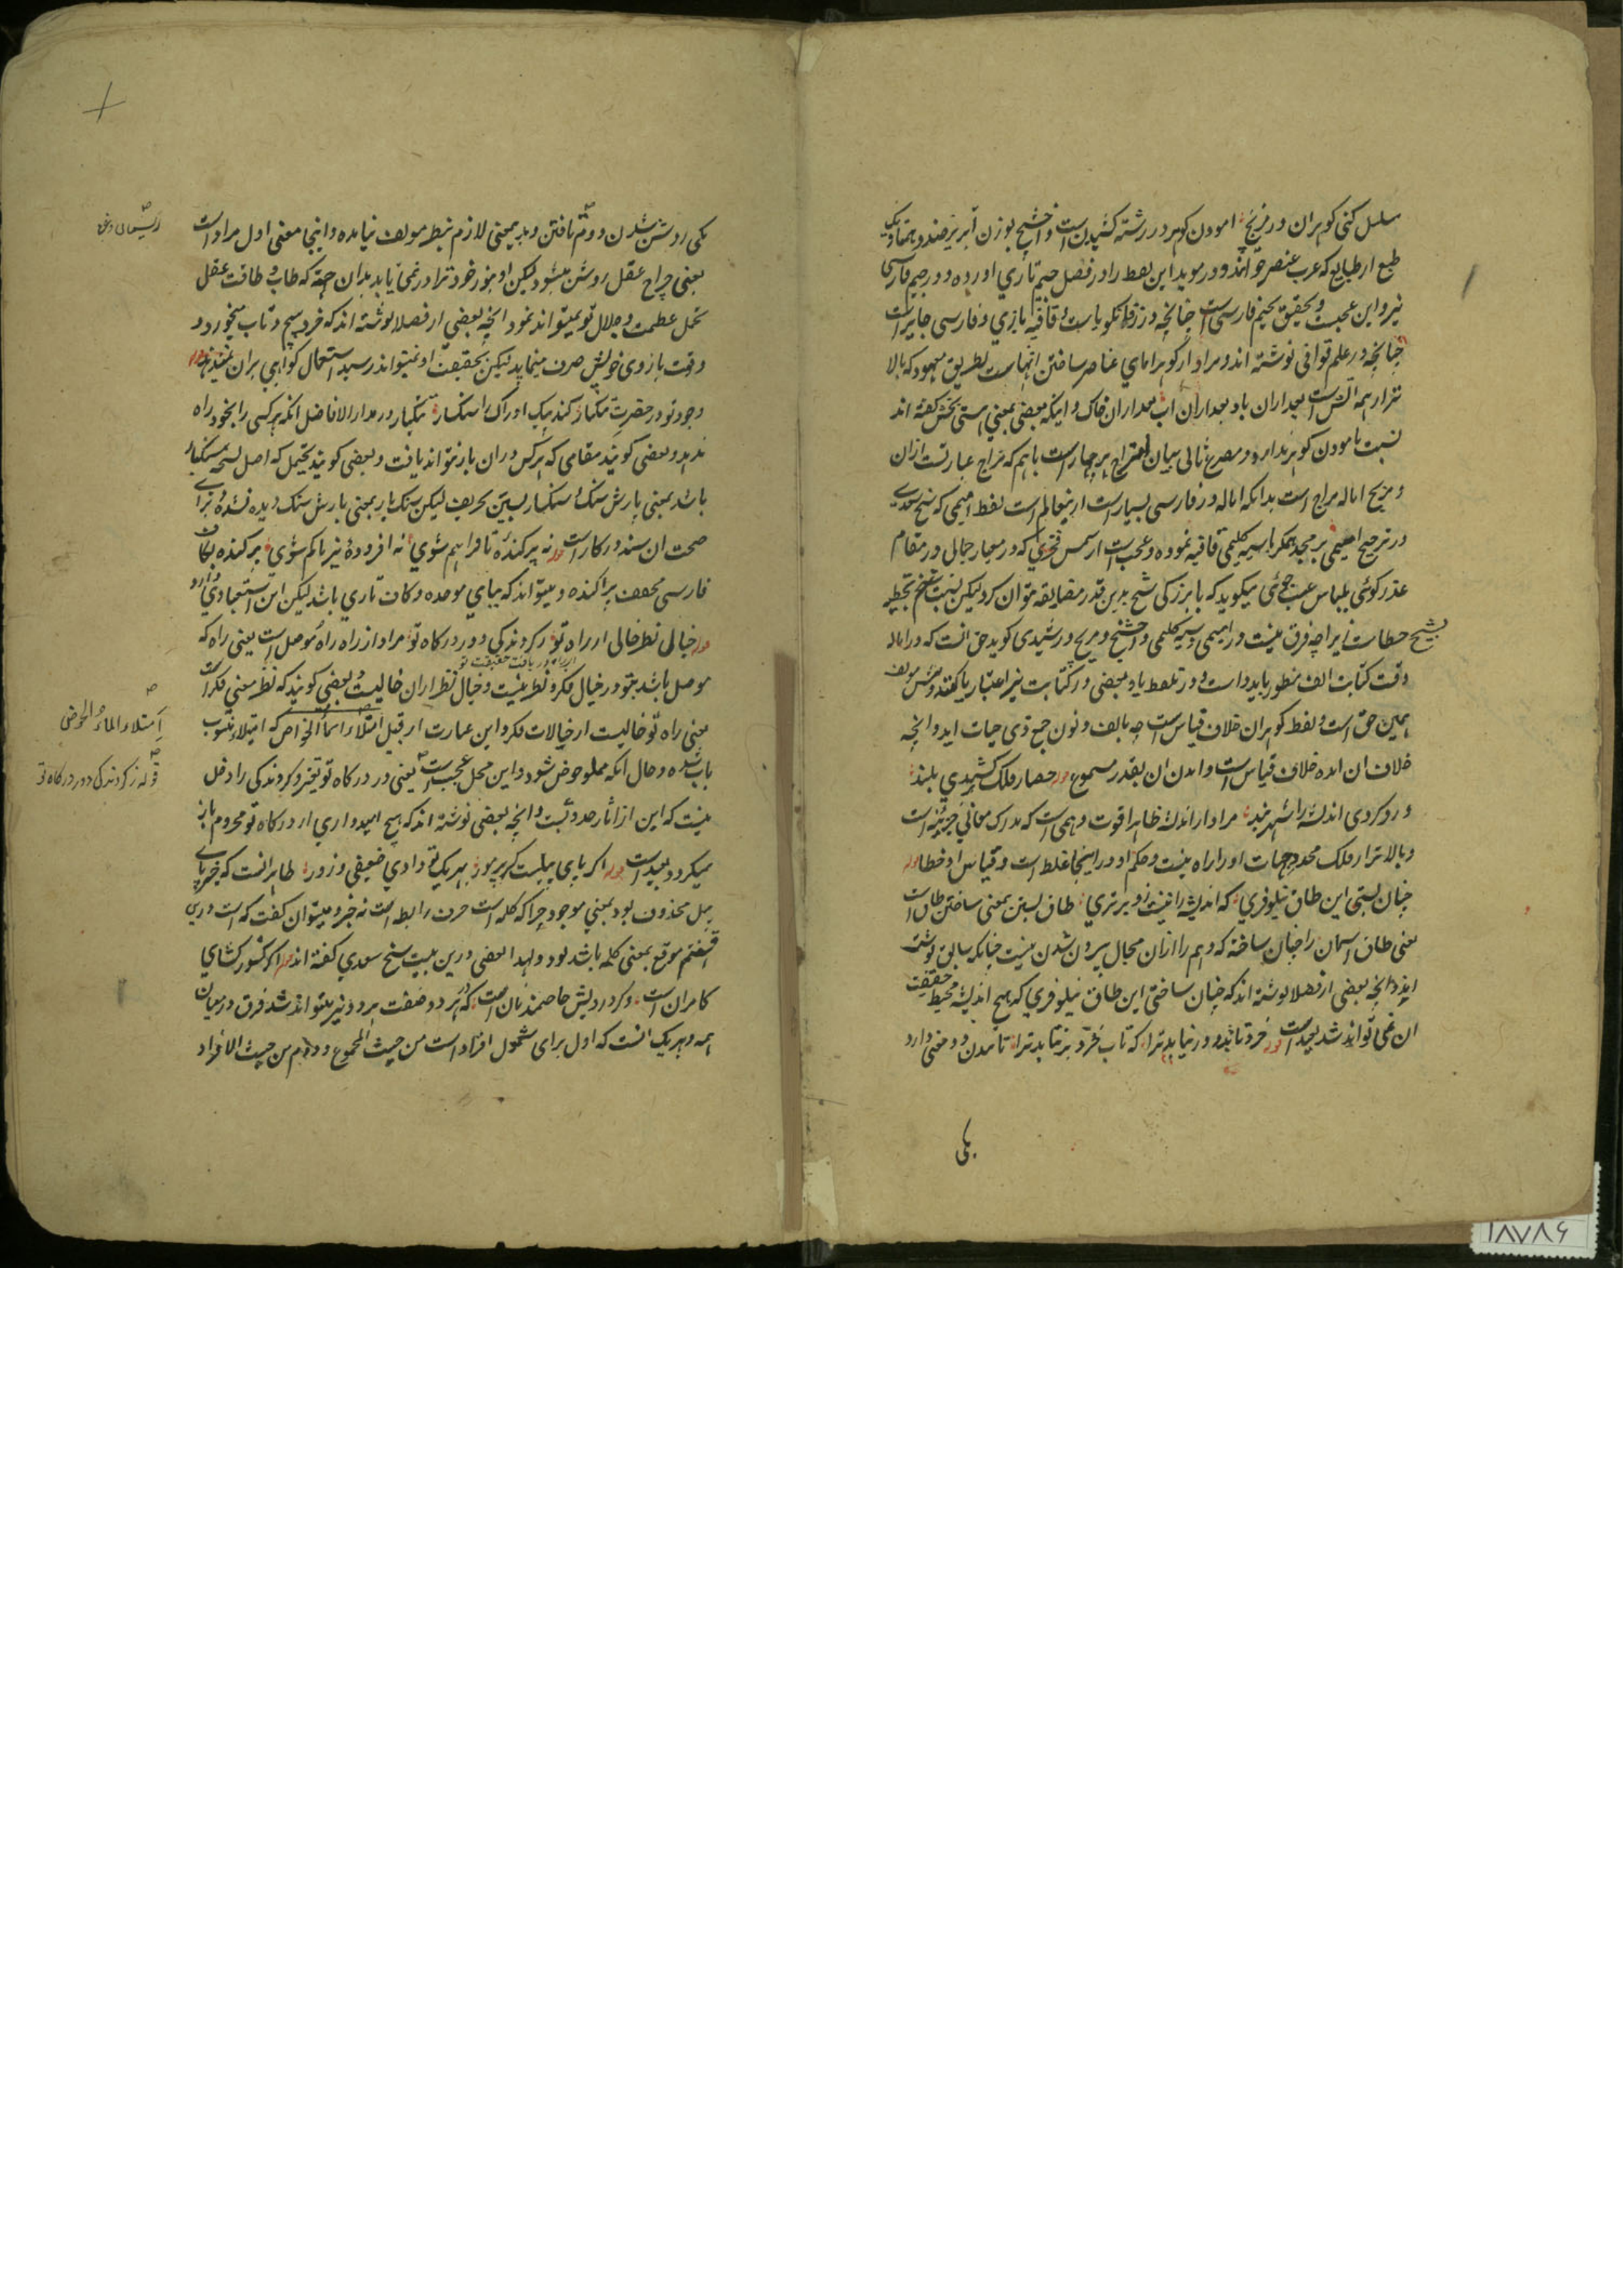 سلسل کنی کوهران در مزیج امودن کوهر در رشته کشیدن است و اخشیج بوزن آبریز ضد و هر یک
طبع از طبایع که عرب عنصر خوانند و در موید این لفظ را در فصل جیم تازي اورده و در جیم فارسی
نیز و این عجبست و تحقیق بجیم فارسی است چنانچه در فارسی جایز است
چنانچه در علم قوافی نوشته اند و مراد از کوهرامای عناصر ساختن انهاست بطریق معهود که بالا
تر از همه آتش است بعد ازان باد بعد ازان اب بعد ازان خاک و اینکه بعضی بمعنی استی بخش کفته اند
نسبت بامودن کوهر ندارد و مصرع ثانی بیان امتزاج هر چهار است باهم که مزاج عبارتست ازان
و مزیج اماله مزاج است بدانکه اماله در فارسی بسیار است ازینعالم است لفظ امیمی که شیخ سعدی
در ترجیع قافیه نموده و عجب است از شمس فخری که در معیار جمالی در مقام
عذر کوئی بلباس عیب جوئی میکوید که با بزرکی شیخ بدین قدر مضایقه نتوان کرد لیکن نسبت
شیخ خطاست زیرا چه فرق نیست در امیمی و کلیمی و اخشیج و مزیج و رشیدی کوید حق انست که در اماله
وقت کتابت الف منظور باید داشت و در تلفظ یا و بعضی در کتابت نیز اعتبار یا کفته و مولف
همین حق است و لفظ کوهران خلاف قیاس است چه بالف و نون جمع ذی حیات اید و انچه
خلاف ان امده خلاف قیاس است و امدن ان بقدر مسموع قوله حصار فلک برکشیدي بلند
درو کردی اندیشه را شهربند مراد از اندیشه ظاهرا قوت وهمی است که مدرک معانی جزئیه است
و بالاتر از فلک محدد جهات او را راه نیست و حکم او در اینجا غلط است و قیاس او خطا قوله
چنان بستی این طاق نیلوفري که اندیشه را نیست زو برتري طاق بستن بمعنی ساختن طاق است
یعنی طاق اسمان را چنان ساخته که وهم را ازان مجال بیرون شدن نیست چنانکه سابق نوشت
اید و انچه بعضی از فضلا نوشته اند که چنان ساختی این طاق نیلوفري که هیچ اندیشه محیط حقیقت
ان نمی تواند شد بعید است قوله خرد تا ابد در نیابد ترا که تاب خرد بر نتابد ترا تابیدن دو معنی دارد
یکی
یکی روشن شدن و دوم تافتن و به معنی لازم بنظر مولف نیامده و اینجا معنی اول مراد است
یعنی چراغ عقل روشن میشود لیکن او بنور خود ترا در نمی یابد بدان جهة که طاب و طاقت عقل
تحمل عظمت و جلال تو نمیتواند نمود انچه بعضی از فضلا نوشته اند که خرد پیچ و تاب میخورد و
وقت بازوی خویش صرف مینماید لیکن بحقیقت او نمیتواند رسید استعمال کواهی بران نمیدهد قوله
وجود تو در حضرت تنکبار کند پیک ادراک را سنکسار تنکبار در مدار الافاضل انکه هر کسی را بخود راه
ندهد و بعضی کویند مقامی که هر کس دران بار نتواند یافت و بعضی کویند یحتمل که اصل نسخه سنکبار
باشد بمعنی بارش سنک و سنکسار بسین تحریف لیکن سنکبار بمعنی بارش سنک دیده نشده برای
صحت ان سند در کار است قوله نه پرکندهٔ تا فراهم شوي نه افزودهٔ نیز تا کم شوي پرکنده بکاف
فارسی مخفف پراکنده و میتواند که ببای موحده و کاف تازي باشد لیکن این استبعادی دارد
قوله خیالی نظر خالی از راه تو ز کردندکی دور درکاه تو مراد از راه راه موصل است یعنی راه که
از راه دریافت حقیقت تو
موصل باشد بتو در خیال فکر و نظر نیست و خیال نظر ازان خالیست و بعضی کویند که نظر بمعنی فکر است
یعنی راه تو خالیست از خیالات فکر و این عبارت از قبیل امتلاء الماء الحوض که امتلاء منسوب
باب شده و حال انکه مملو حوض شود و این محل عجب است یعنی در درکاه تو تغیر و کردندکی را دخل
نیست که این از اثار حدوثست و انچه بعضی نوشته اند که هیچ امیدواري از درکاه تو محروم باز
نمیکردد بعید است قوله اکر پای پیلست کر پر مور بهر یک تو دادي ضعیفی و زور ظاهر انست که خبر پای
پیل محذوف بود بمعنی موجود چرا که کلمه است حرف رابطه است نه خبر و میتوان کفت که است درین
قسم موقع بمعنی کلمه باشد بود و لهذا بعضی درین بیت شیخ سعدي کفته اند قوله اکر کشور کشاي
کامران است و کر درویش حاجتمند نان است که در هر دو صفت هر دو نیز میتواند شد فرق درمیان
همه و هر یک انست که اول برای شمول افراد است من حیث المجموع و دوم من حیث الافراد
امتلاء الماء الحوض
قوله ز کردندکی دور درکاه تو
۱۸۷۸۶